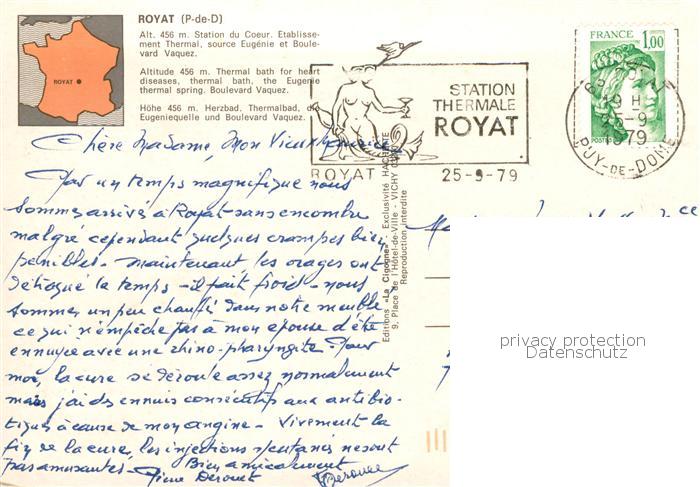 ROYAT (P-de-D)
Alt. 456 m. Station du Coeur. Etablisse-
ment Thermal, source Eugénie et Boule-
vard Vaquez.
Altitude 456 m. Thermal bath for heart
diseases, thermal bath, the Eugenie
thermal spring. Boulevard Vaquez.
Höhe 456 m. Herzbad. Thermalbad,
Eugeniequelle und Boulevard Vaquez.
ROYAT
STATION
THERMALE
ROYAT
ROYAT 25-9-79
FRANCE 1,00
POSTES
19 H
25-9
1979
PUY-DE-DOME
Chère Madame, Mon Vieux Maurice
Par un temps magnifique nous
sommes arrivés à Royat sans encombre
malgré cependant quelques crampes bien
pénibles - Maintenant, les orages ont
détraqué le temps - il fait froid - nous
sommes un peu chauffé dans notre meublé
ce qui n'empêche pas à mon épouse d'être
ennuyée avec une rhino-pharyngite - Pour
moi, la cure se déroule assez normalement
mais j'ai des ennuis consécutifs aux antibio-
tiques à cause de mon angine - Vivement la
fin de la cure, les injections ne sont
pas amusantes - Bien amicalement
Pierre Derouet
Editions «La Cigogne» - Exclusivité HACHETTE
9, Place de l'Hôtel-de-Ville - VICHY
Reproduction interdite
privacy protection
Datenschutz